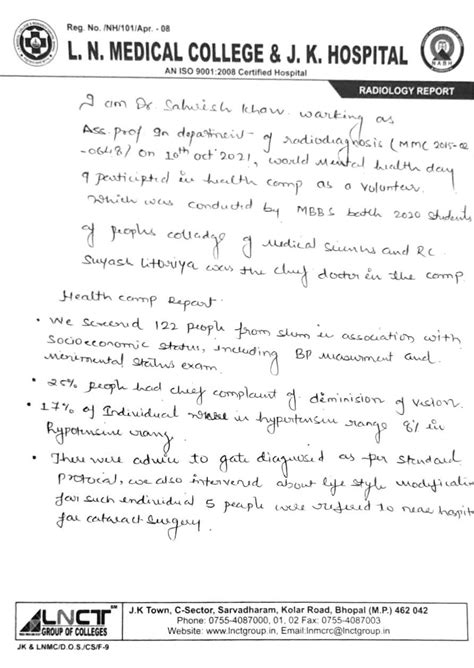 Reg. No. /NH/101/Apr. - 08
L. N. MEDICAL COLLEGE & J. K. HOSPITAL
AN ISO 9001:2008 Certified Hospital
NABH
RADIOLOGY REPORT
I am Dr. Sahrish Khan working as
Ass. prof In department of radiodiagnosis (MMC 2015-02
-0648) on 10th oct 2021, world Mental health day
I participted in health camp as a volunteer.
which was conducted by MBBS batch 2020 students
of peoples colladge of medical and
Suyash was the chief doctor in the camp.
Health camp Report.
• We screend 122 people from slum in association with
Socioeconomic status, including BP measurment and
status exam.
• 20% people had chief complaint of diminision of vision.
• 17% of Individual in hypertensive range 8% in
hypotensive
• There were advice to gate diagnosed as per standard
protocal, we also intervened about life style modificatio
for such endividual 5 people were refered to near hospita
for cataract surgery.
LNCT
GROUP OF COLLEGES
J.K Town, C-Sector, Sarvadharam, Kolar Road, Bhopal (M.P.) 462 042
Phone: 0755-4087000, 01, 02 Fax: 0755-4087003
Website: www.lnctgroup.in, Email:lnmcrc@lnctgroup.in
JK & LNMC/D.O.S./CS/F-9